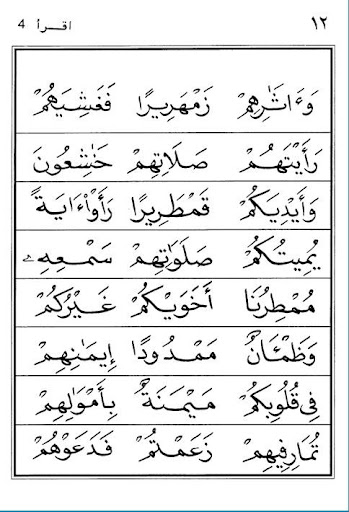 ١٢ اقرأ 4
وَءَاثَٰرِهِمْ زَمْهَرِيرًا فَغَشِيَهُمْ
رَأَيْتَهُمْ صَلَاتِهِمْ خَٰشِعُونَ
وَأَيْدِيَكُمْ قَمْطَرِيرًا رَأَوْا۟ءَايَةً
يُمِيتُكُمْ صَلَوَٰتِهِمْ سَمْعِهِۦ
مُمْطِرُنَا أَخَوَيْكُمْ غَيْرُكُمْ
وَظَمْـَٔانٌ مَمْدُودًا إِيمَٰنِهِمْ
فِى قُلُوبِكُمْ مَيْمَنَةٌ بِأَمْوَٰلِهِمْ
تُمَارِفِيهِمْ زَعَمْتُمْ فَدَعَوْهُمْ